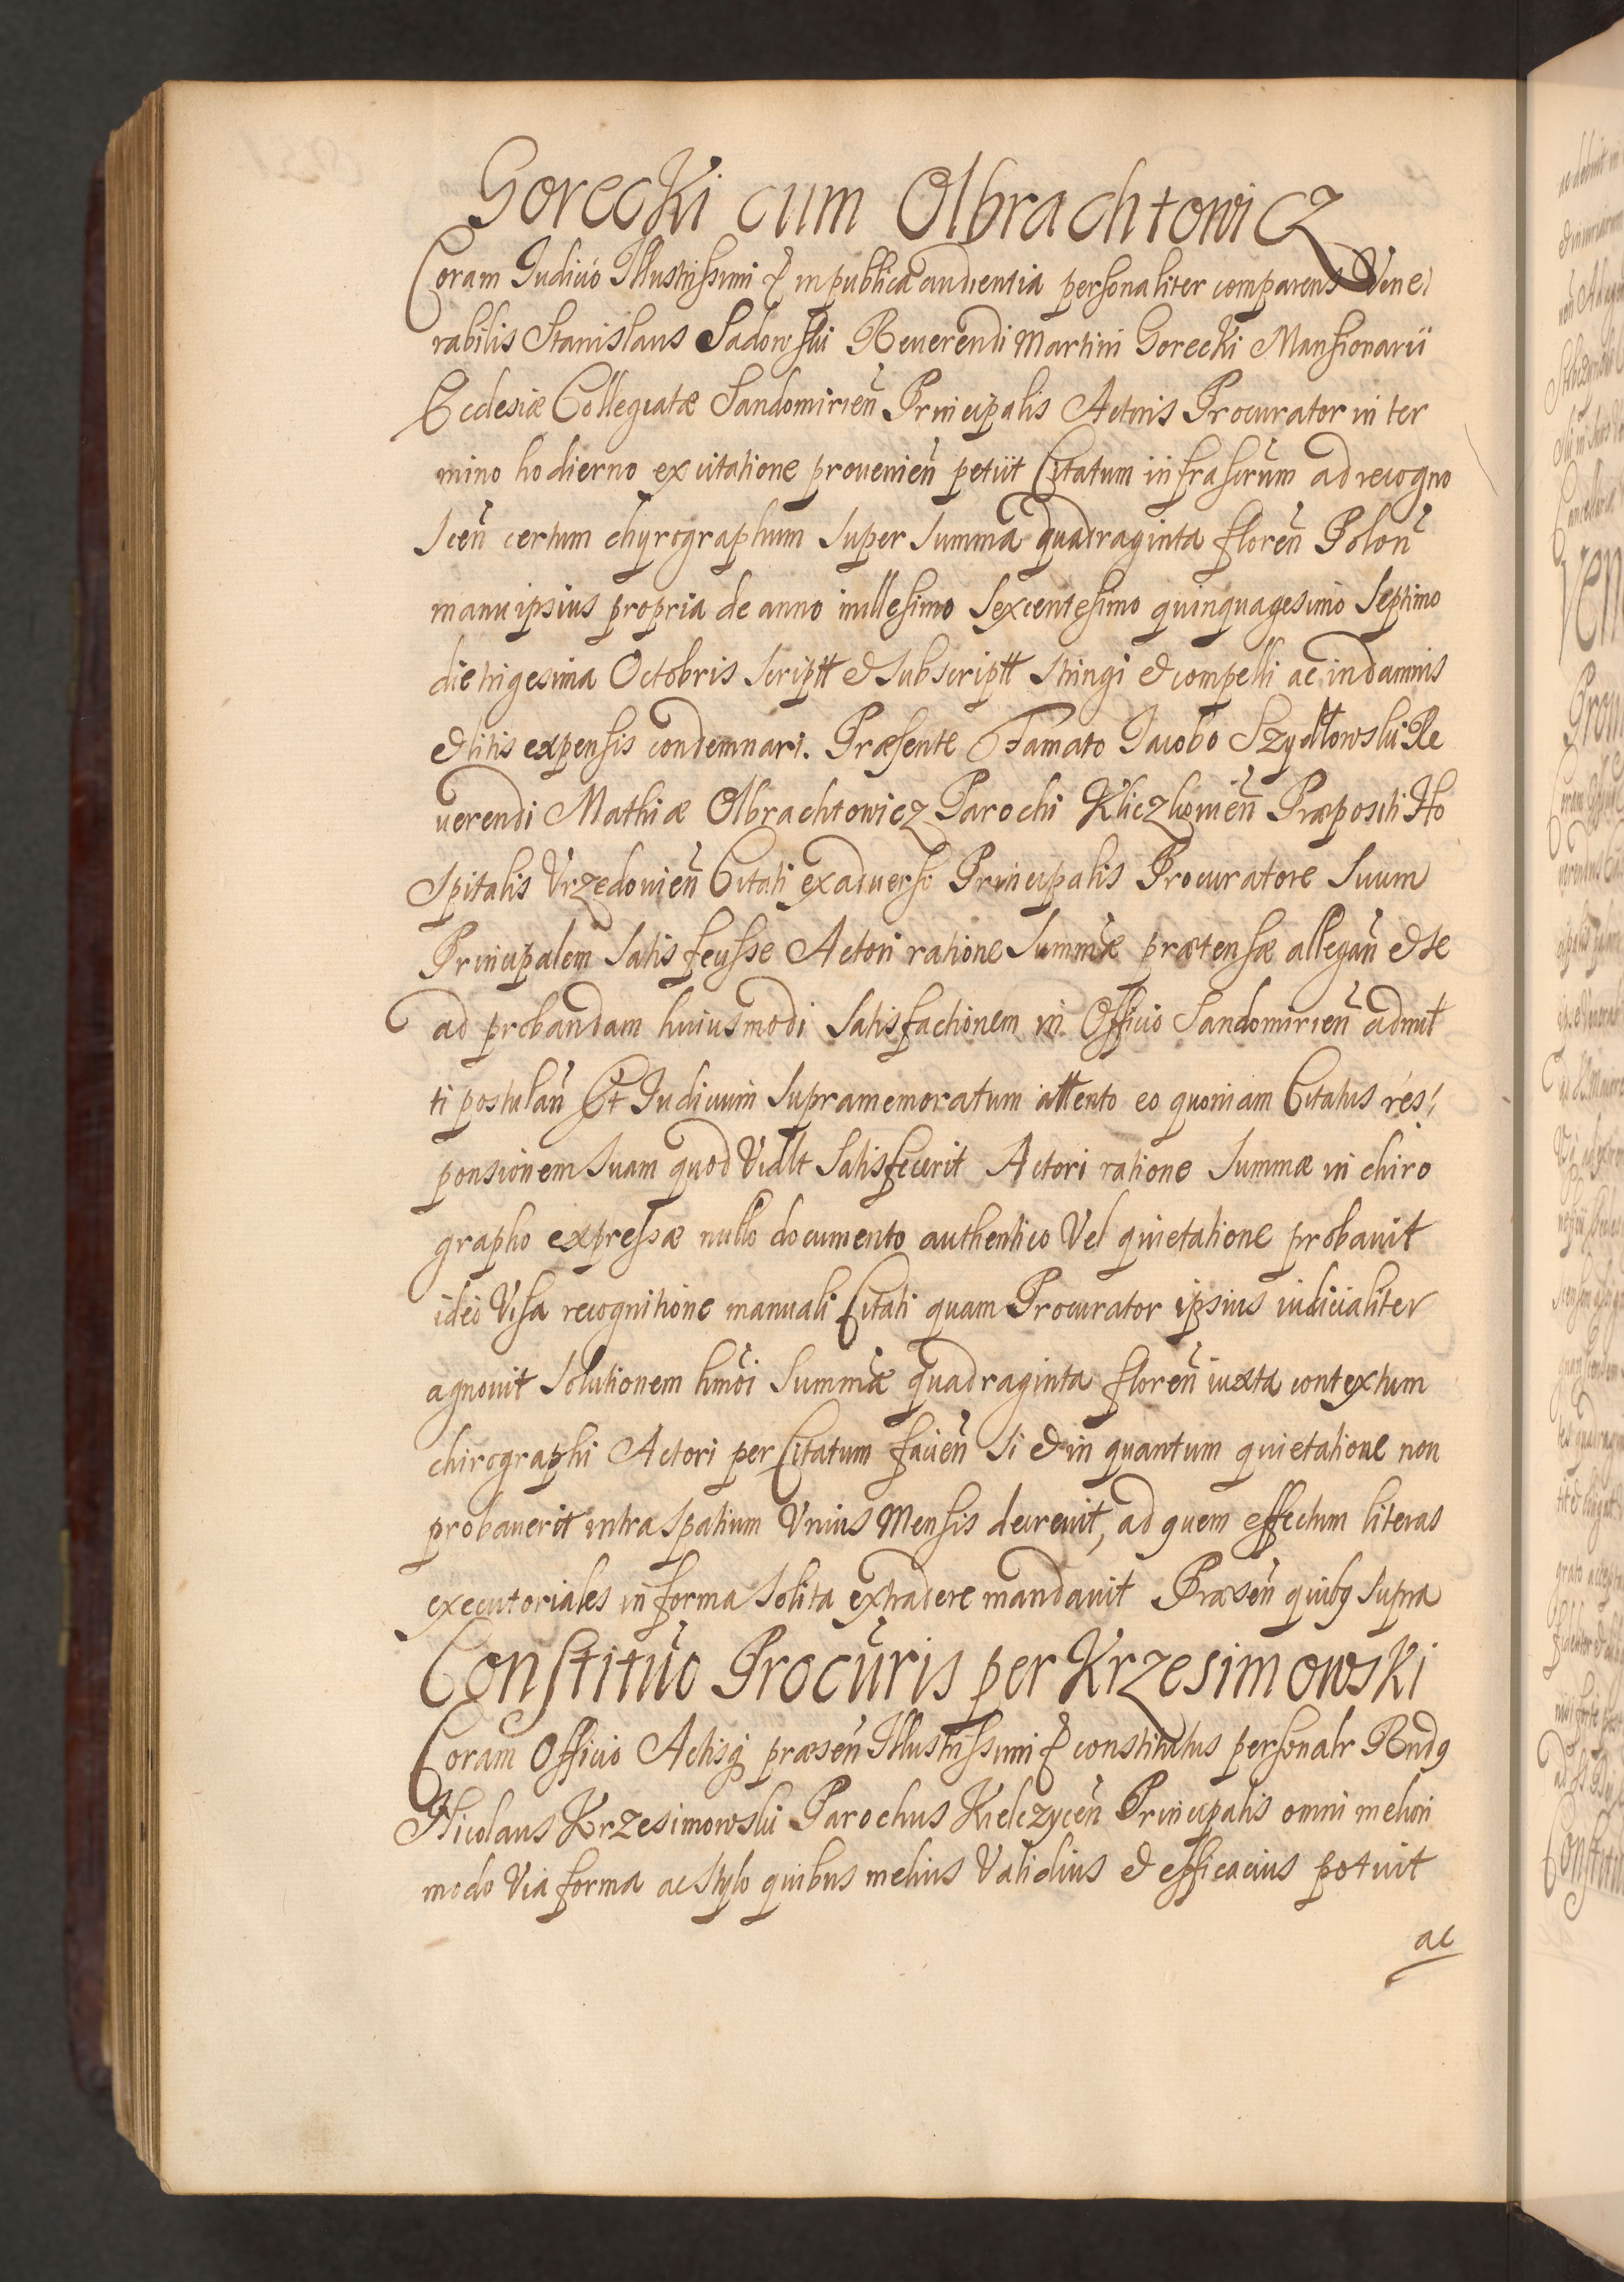 Gorecki cum Olbrachtowicz
Coram Judicio Illustrissimi & in publica audientia personaliter comparens Vene/
rabilis Stanislaus Sadowski Reuerendi Martini Gorecki Mansionarii
Ecclesiæ Collegiatæ Sandomirien̄ Principalis Actoris Procurator in ter
mino hodierno ex citatione prouenien̄ petiit Citatum infrascrūm ad recogno
scen̄ certum chyrographum super summa quadraginta floren̄ Polon̄
manu ipsius propria de anno millesimo sexcentesimo quinquagesimo septimo
die trigesima Octobris scriptt & subscriptt stringi & compelli ac in damnis
& litis expensis condemnari. Præsente Famato Jacobo Szydłowski Re
uerendi Mathiæ Olbrachtowicz Parochi Kliczkouien̄ Præpositi Ho
spitalis Vrzedouien̄ Citati ex aduerso Principalis Procuratore suum
Principalem satis fecisse Actori ratione summæ prætensæ allegan̄ & se
ad probandam huiusmodi satisfactionem in Officio Sandomirien̄ admit
ti postulan̄ Et Judicium supramemoratum attento eo quoniam Citatus res/
ponsionem suam quod Vidlt satisfecerit Actori ratione summæ in chiro
grapho expressæ nullo documento authentico Vel quietatione probauit
ideo Visa recognitione manuali Citati quam Procurator ipsius iudicialiter
agnouit solutionem hmōi summæ quadraginta floren̄ iuxta contextum
chirographi Actori per Citatum facien̄ si & in quantum quietatione non
probauerit intra spatium Vnius Mensis decreuit, ad quem effectum literas
executoriales in forma solita extradere mandauit Præsen̄ quibg supra
Constituo Procuris per Krzesimowski
Coram Officio Actisq præsen̄ Illustrissimi & constitutus personalr Rndg
Nicolaus Krzesimowski Parochus Kielczycen̄ Principalis omni meliori
modo Via forma ac stylo quibus melius Validius & efficacius potuit
ac